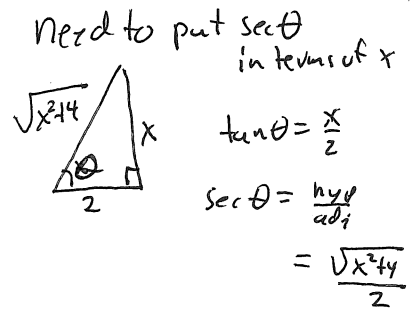 need to put secθ
in terms of x
√x²+4
x
θ
2
tanθ = x/2
secθ = hyp/adj
= √x²+4/2